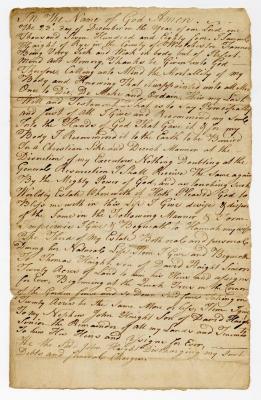 In The Name of God Amen
the 23d Day of December in the Year of our Lord one
Thousand Seven Hundred and Eighty I Samuel
Haight of Rye in ye County of Westchester Farmer
Being Very Sick and Weak in body but of Perfect
Mind and Memory Thanks be Given unto God
Therefore Calling unto Mind the Mortality of my
Body and Knowing That it is appointed unto all Men
Once to Die Do Make and Ordain This my Last
Will and Testament That is to Say Principally
and First of all I Give and Recommend my Soul
Into the Hands of God That Gave it and my
Body I Recommend to the Earth to be Buried
In a Christian Like and Decent Manner at the
Discretion of my Executors Nothing Doubting at the
General Resurrection I Shall Receive The Same again
By the Mighty Power of God and as touching Such
Worldly Estate Wherewith it hath Pleased God to
Bless me with in this Life I Give devise & dispose
of the Same in the Following Manner & Form
Imprimis I Give & Bequeath to Hannah my Wife
the Third of My Estate Both real and personal
During her Natural Life Item I Give and Bequeath
To Thomas Haight Son of David Haight Senior
Twenty Acres of Land to him his Heirs and Assigns
for Ever Beginning at the
Twenty Acres be the Same More or Less Item I Give
To my Nephew John Haight Son of David Haight
Senior the Remainder of all my Lands and Tenements
to him His Heirs and Assigns for Ever
He the Sd John Haight Discharging my Just
Debts and funeral Charges